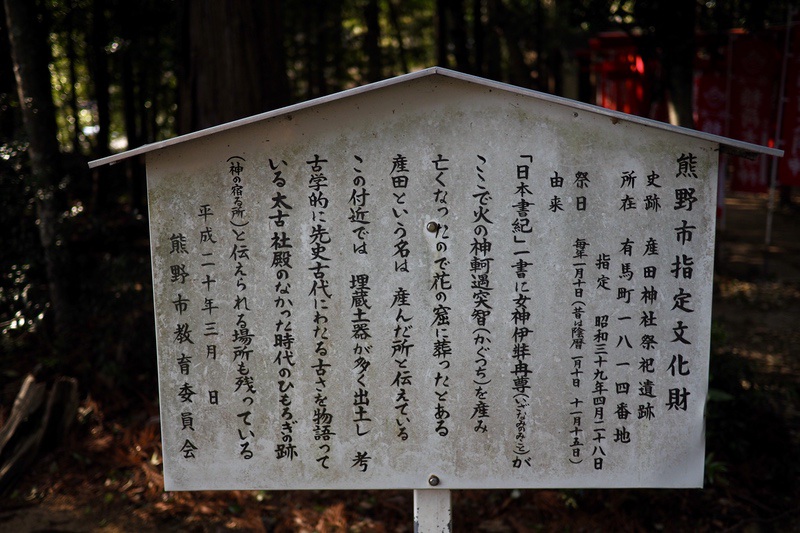 熊野市指定文化財
史跡 産田神社祭祀遺跡
所在 有馬町一八一四番地
指定 昭和三十九年四月二十八日
祭日 毎年一月十日(昔は陰暦一月十日 十一月十五日)
由来
「日本書紀」一書に女神伊弉冉尊(いざなみのみこと)が
ここで火の神軻遇突智(かぐつち)を産み
亡くなったので花の窟に葬ったとある
産田という名は 産んだ所と伝えている
この付近では 埋蔵土器が多く出土し 考
古学的に先史古代にわたる古さを物語って
いる 太古社殿のなかった時代のひもろぎの跡
(神の宿る所)と伝えられる場所も残っている
平成二十年三月 日
熊野市教育委員会